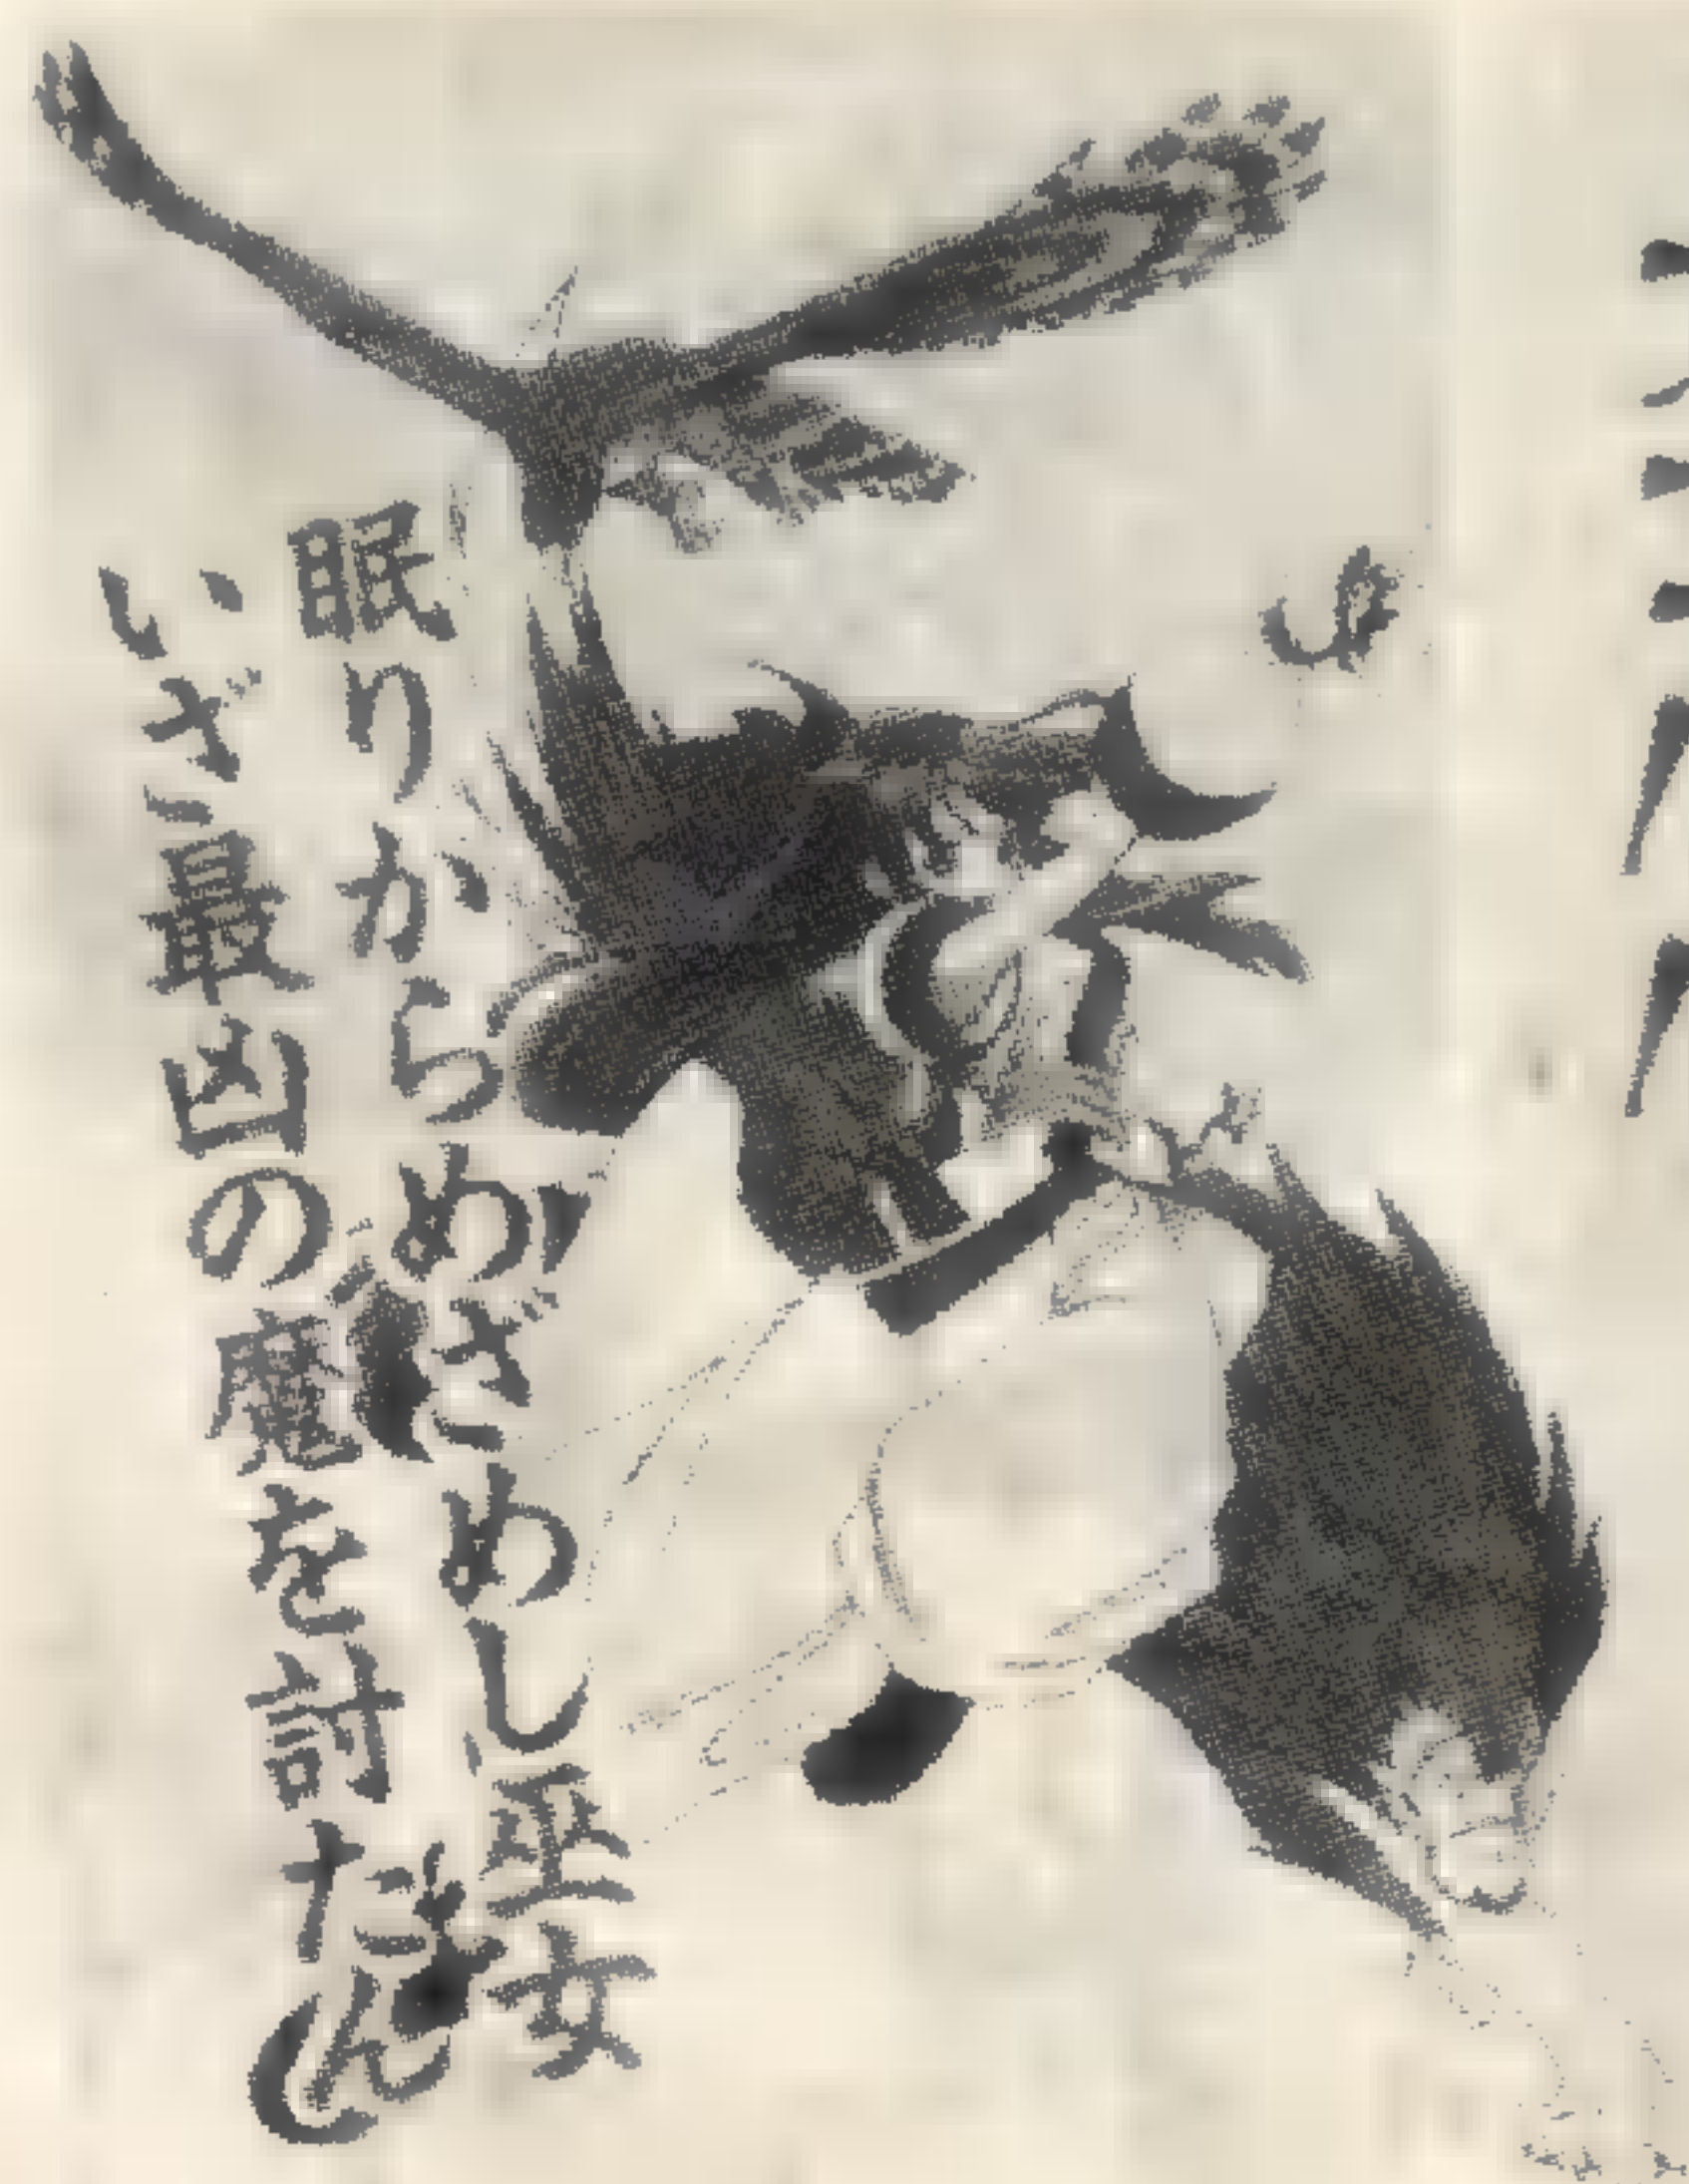 眠りからめざめし巫女
いざ最凶の魔を討たん